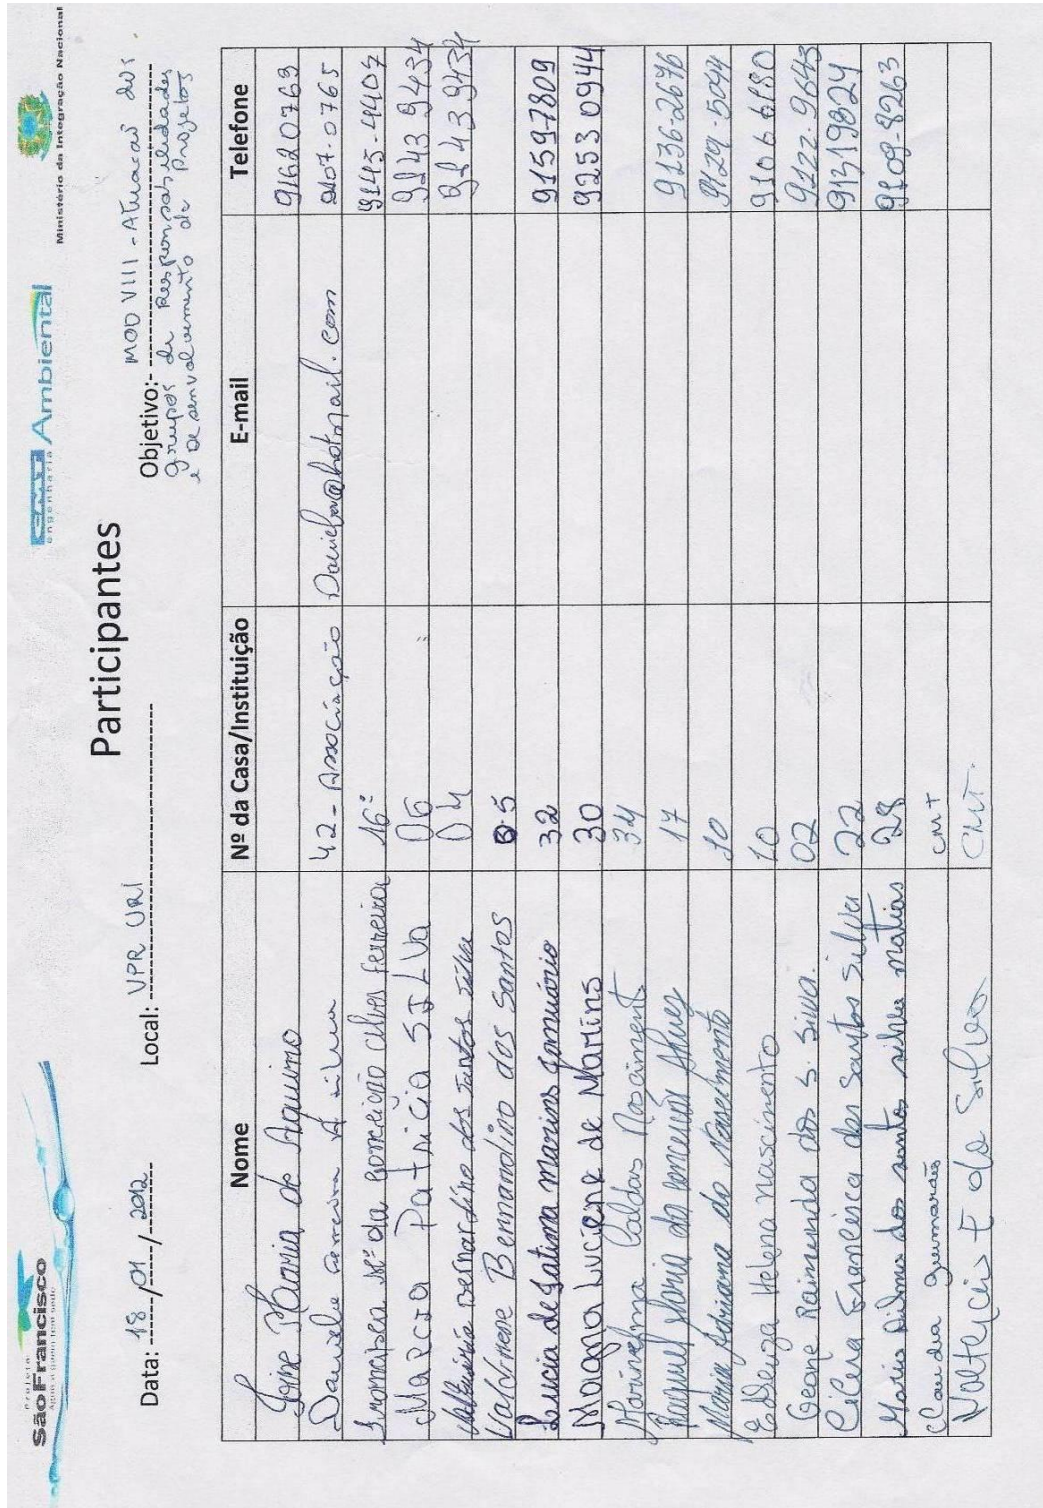 Projeto
São Francisco
Água a quem tem sede
engenharia
Ambiental
Ministério da Integração Nacional
Participantes
Data: 18/01/2012 Local: VPR URI Objetivo:- MOD VIII - Atuacaõ dos
grupos de Responsabilidades
e Desenvolvimento de Projetos
Nome Nº da Casa/Instituição E-mail Telefone
Maria de Aquino 91620763
Daniela da silva 42 - Associação @hotmail.com 9107.0765
Francisca Mª da Conceição Alves Ferreira 16º 9143-4407
Marcia Patricia SILVA 06 9143 9434
Bernardino dos Santos silva 04 9143 9434
Valdinese Bernnardino dos Santos 05
Lucia de Fatima Marins Januário 32 9159-7809
Magna Luciene de Martins 30 9253 0944
Marinelma Caldas Nascimento 34
Raquel Maria da Alves 17 9136-2676
Maria Adriana do Nascimento 10 9129-5094
Edleuza Helena nascimento 10 9106 6980
Geane Raimunda dos S. Silva. 02 9122-9643
Cicera Francisca dos Santos Silva 22 91319824
Maria Dilma dos santos silva Matias 28 9109-8263
Claudia Guimarães CMT
Valtécio F da Silva CMT.